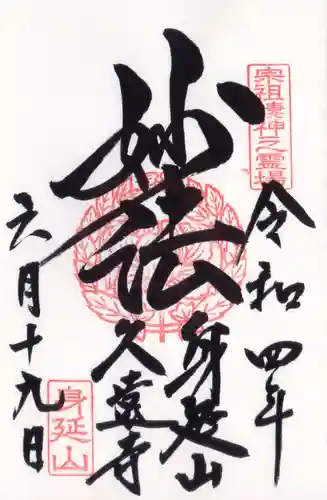 宗祖棲神之霊場
令和四年
妙法
身延山
久遠寺
六月十九日
身延山